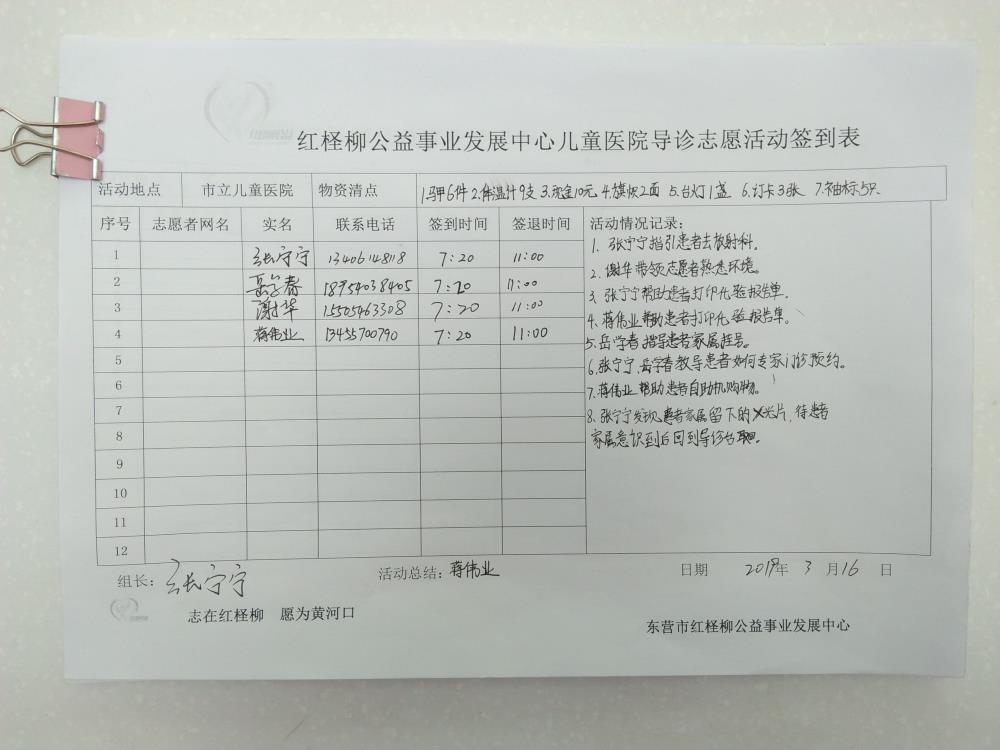 红柽柳公益事业发展中心儿童医院导诊志愿活动签到表
活动地点 市立儿童医院 物资清点 1.马甲6件 2.体温计9支 3.现金10元 4.旗帜2面 5.台灯1盏 6.订卡3张 7.袖标5只
序号 志愿者网名 实名 联系电话 签到时间 签退时间 活动情况记录:
1 张宁宁 13406148118 7:20 11:00
2 岳学春 18954038405 7:20 11:00
3 谢华 15505463308 7:20 11:00
4 蒋伟业 13455700790 7:20 11:00
5
6
7
8
9
10
11
12
1. 张宁宁指引患者去放射科。
2. 谢华带领志愿者熟悉环境。
3. 张宁宁帮助患者打印化验报告单.
4. 蒋伟业帮助患者打印化验报告单。
5. 岳学春指导患者家属挂号。
6. 张宁宁,岳学春教导患者如何专家门诊预约。
7. 蒋伟业帮助患者自助机购物。
8. 张宁宁发现患者家属留下的X光片,待患者
家属意识到后回到导诊台取回。
组长: 张宁宁 活动总结: 蒋伟业 日期 2019年 3 月16 日
志在红柽柳 愿为黄河口
东营市红柽柳公益事业发展中心